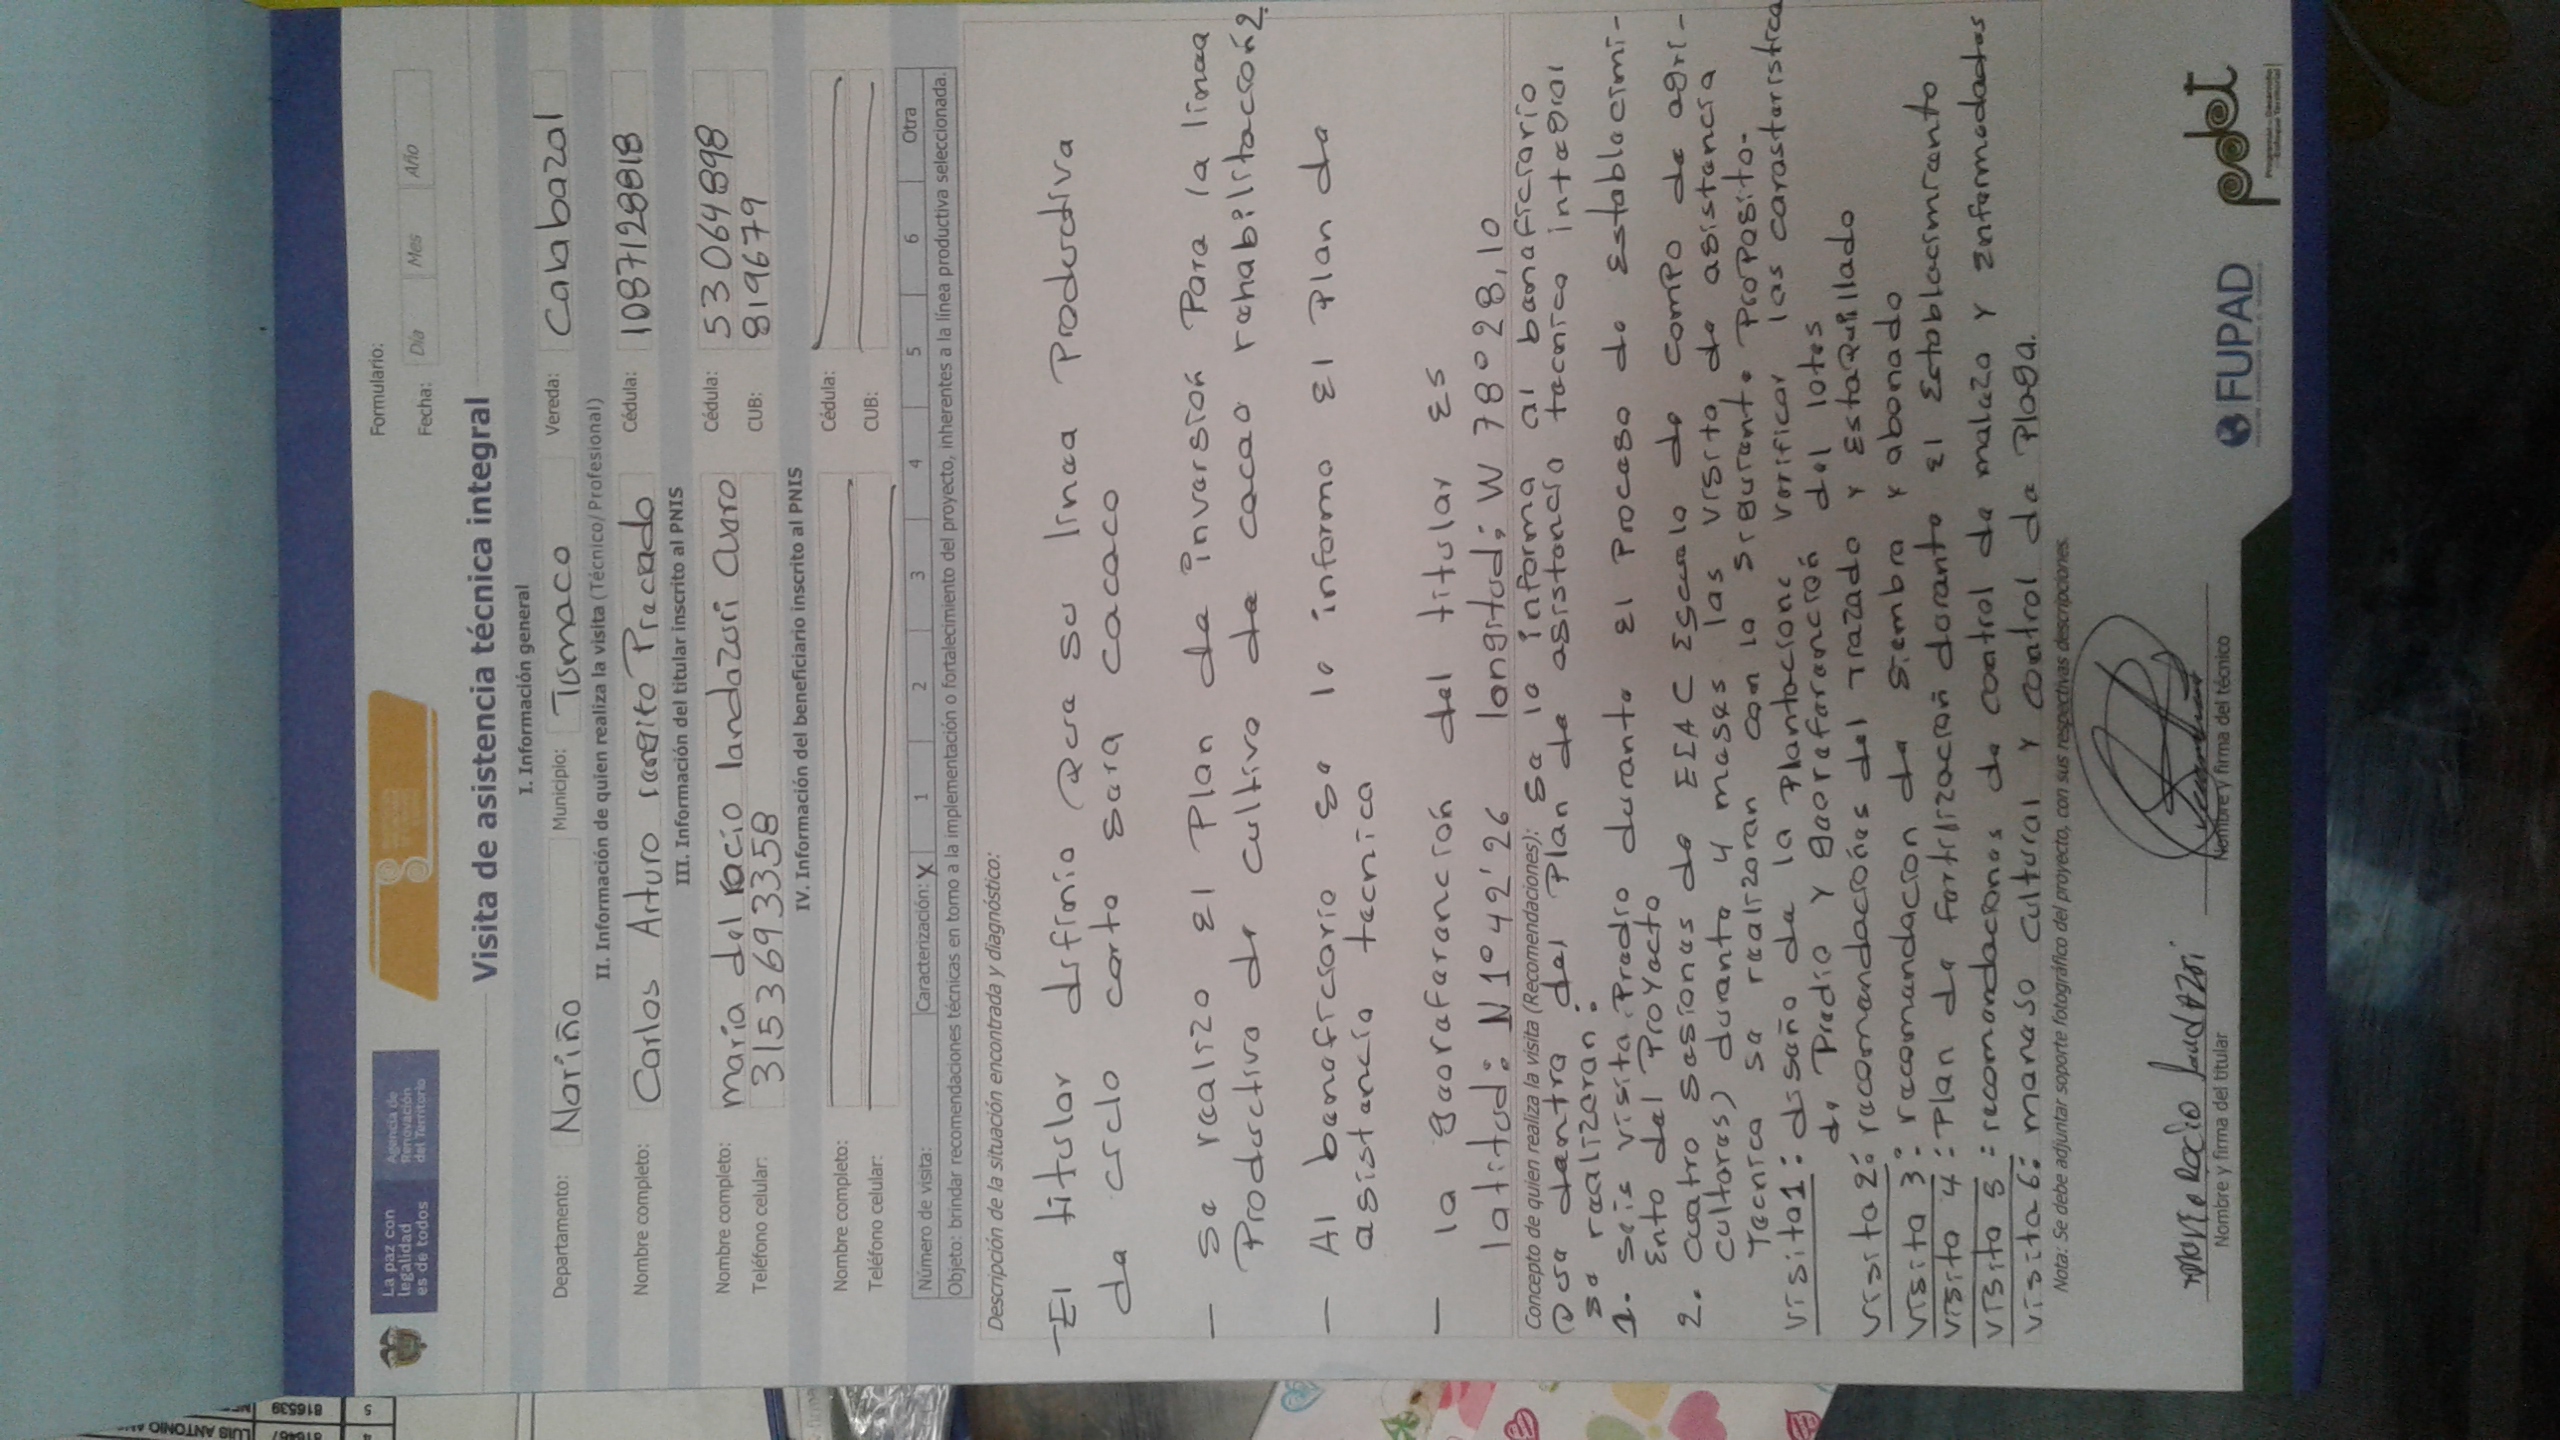 La paz con
legalidad
es de todos
Agencia de
Renovación
del Territorio
Formulario:
Fecha: Día Mes Año
Visita de asistencia técnica integral
I. Información general
Departamento: Noriño Municipio: Tumaco Vereda: Calabazal
II. Información de quien realiza la visita (Técnico/ Profesional)
Nombre completo: Carlos Arturo Preciado Cédula: 1087128818
III. Información del titular inscrito al PNIS
Nombre completo: maria del rocio landazuri Cédula: 53064898
Teléfono celular: 3153693358 CUB: 819679
IV. Información del beneficiario inscrito al PNIS
Nombre completo: Cédula:
Teléfono celular: CUB:
Número de visita: Caracterización: X 1 2 3 4 5 6 Otra
Objeto: brindar recomendaciones técnicas en torno a la implementación o fortalecimiento del proyecto, inherentes a la línea productiva seleccionada.
Descripción de la situación encontrada y diagnóstico:
- El titular difinio Que su linea Productiva
de ciclo corto sera cacaco
- se realizo El Plan de inversión Para la linea
Productivo de cultivo de cacao rehabilitación 2
- Al beneficiario se le informo El Plan de
asistencia tecnica
- la georeferención del titular Es
latitud: N1°42'26 longitud: W 78°28,10
Concepto de quien realiza la visita (Recomendaciones): se le informa al beneficiario
Que dentro del Plan de asistencia tecnica integral
se realizaran:
1. seis visita Predio durante El Proceso de Establecimi-
Ento del Proyecto
2. cuatro sesiones de EEAC Escuela de campo de agri-
cultores) durante 4 meses las visita de asistencia
Tecnica se realizaran con lo siguiente ProPosito.
visita1: diseño de la Plantacione verificar las carasteristica
de Predio y georeferención del lotes
visita 2: recomendaciones del Trazado y EstaQuillado
visita 3: recomendacion de siembra y abonado
visita 4: Plan de fertilización durante El Establecimiento
visita 5: recomendaciones de control de malezo y Enfermedades
visita 6: maneso cultural y control de Plaga.
Nota: Se debe adjuntar soporte fotográfico del proyecto, con sus respectivas descripciones.
Rocio
Nombre y firma del titular Nombre y firma del técnico
FUPAD
pdet
LUIS ANTONIO
5 816539